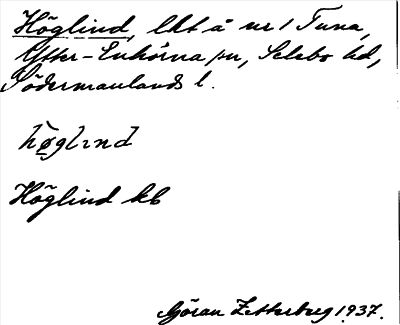 Höglind, lht å nr 1 Tuna,
Ytter-Enhörna sn, Selebo hd,
Södermanlands l.
hø̀glınd
Höglind kb
Göran Zetterberg 1937.